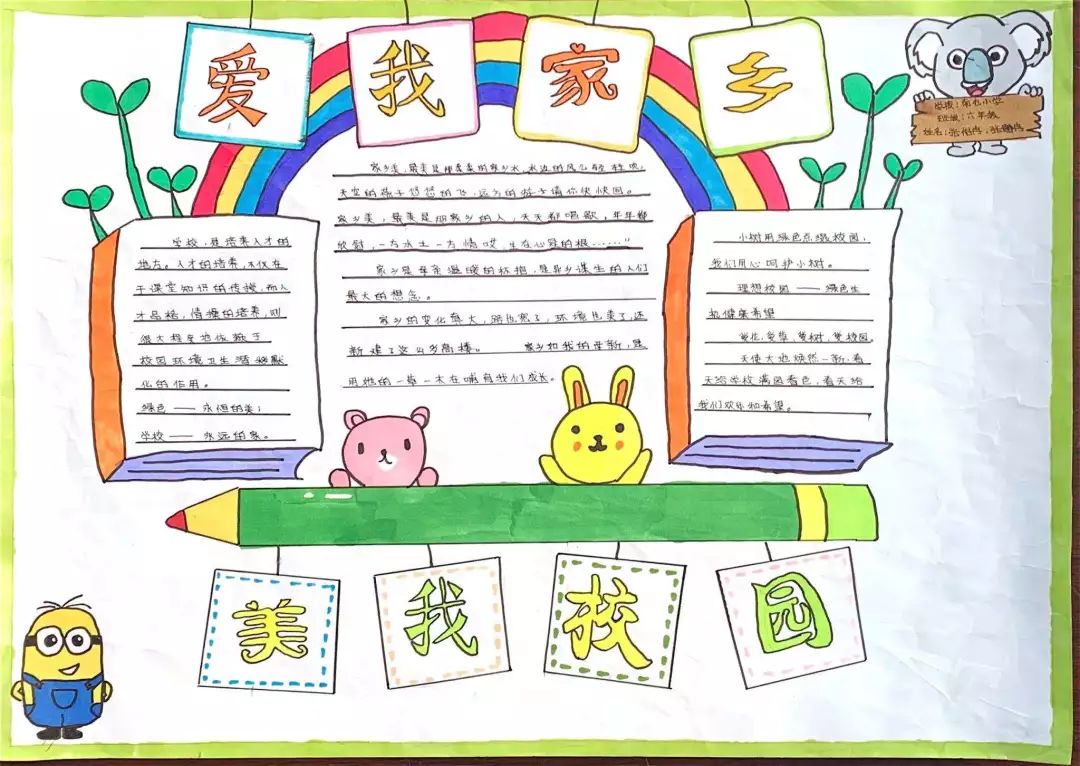 爱我家乡
学校：南屯小学
班级：六年级
学校，是培养人才的
地方。人才的培养，不仅在
于课堂知识的传授，而人
才品格，情操的培养，则
很大程度地依赖于
校园环境卫生潜移默
化的作用。
绿色——永恒的美；
学校——永远的家。
家乡美，最美是那柔柔的家乡水，水边的风儿轻轻吹，
天空的燕子悠悠的飞，远方的游子请你快快回。
家乡美，最美是那家乡的人，天天都唱歌，年年都
欣慰，一方水土一方情哎，生在心窝的根……”
家乡是母亲温暖的怀抱，是异乡谋生的人们
最大的想念。
家乡的变化真大，路也宽了，环境也美了，还
新建了这么多高楼。 家乡如我的母亲，是
用她的一草一木在哺育我们成长。
小树用绿色点缀校园，
我们用心呵护小树。
理想校园——绿色生
机健康希望
爱花，爱草，爱树，爱校园。
天使大地焕然一新，春
天给学校满园春色，春天给
我们欢乐和希望。
美我校园